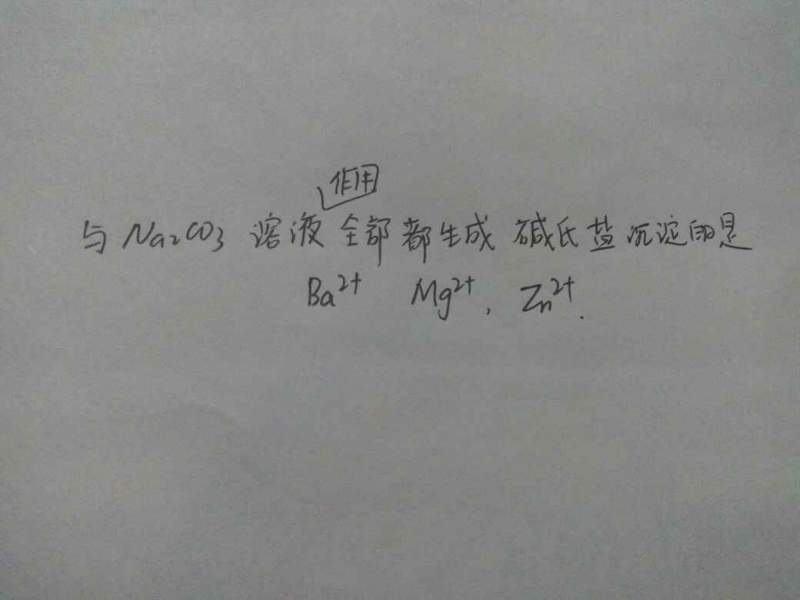 作用
与 Na₂CO₃ 溶液全部都生成 碱氏盐沉淀的是
Ba²⁺ Mg²⁺, Zn²⁺.